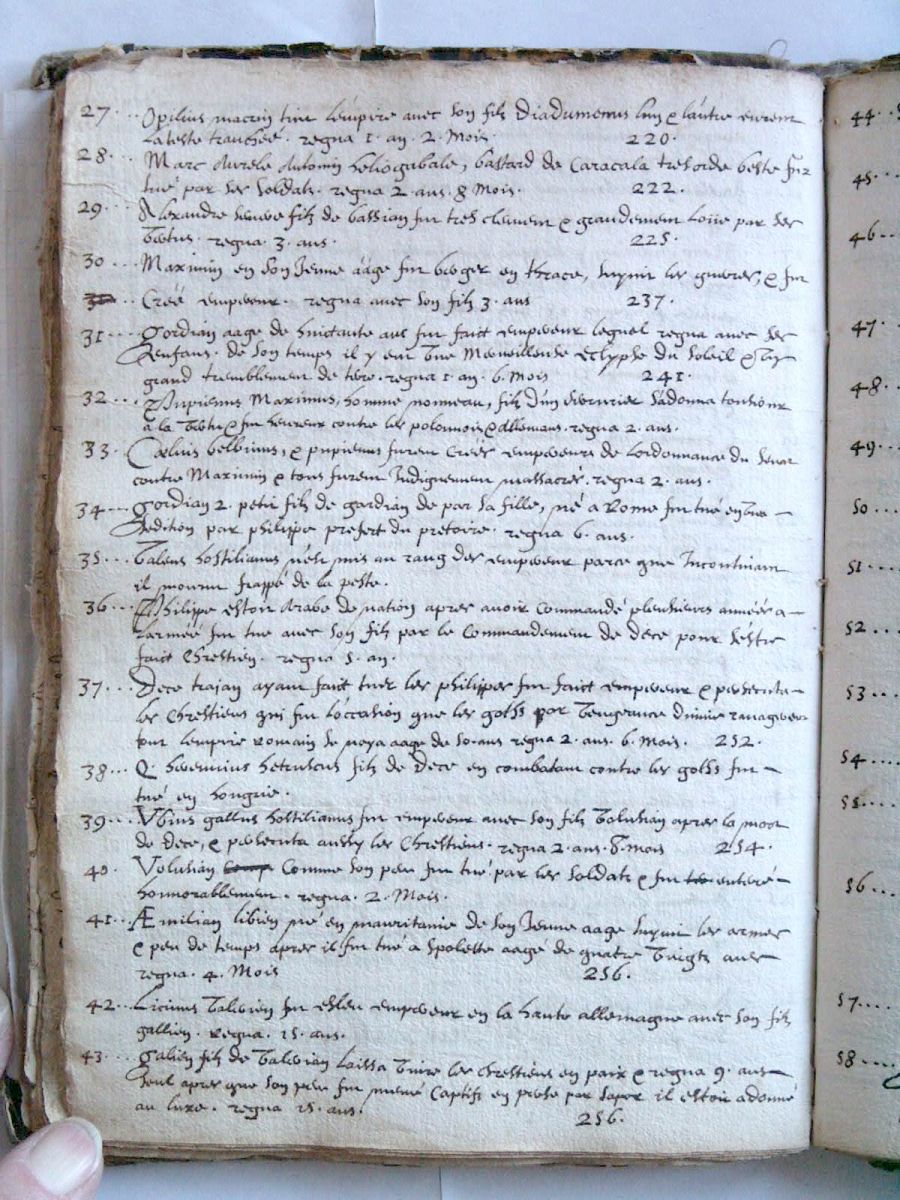 27... Opilius macrin tint l'empire avec son filz Diadumenus luy & l'autre eurent
la teste tranchée. regna 1. an. 2. Mois. 220.
28... Marc Aurele Antonin heliogabale, bastard de Caracala tres orde beste fut
tué par ses soldats. regna 2. ans. 8 Mois. 222.
29... Alexandre severe filz de bassian fut tres clement & grandement loüe par ses
vertus. regna. 3. ans. 225.
30... Maximin en son Jeune aäge fut berger en thrace, suyuit les guerres, & fut
Creé empereur. regna avec son filz 3. ans 237.
31... gordian aage de huictante ans fut faict empereur lequel regna avec ses
enfans. de son temps il y eut vne merveilleuse eclypse du soleil &
grand tremblement de terre. regna 1. an. 6. Mois 241.
32... Pupienus Maximus, homme nouveau, filz d'un serrurier s'adonna tousiours
a la vertu & fut heureux contre les polonnois & allemans. regna 2. ans.
33... Cœlius belbinus, & pupienus furent Creés empereurs de l'ordonnance du senat
contre Maximin & tous furent Indignement massacrés. regna 2. ans.
34... gordian 2. petit filz de gardian de par sa fille, né a Rome fut tué en vne
sedition par philippe prefect du pretoire. regna 6. ans.
35... Valens hostilianus n'est mis au rang des empereurs parce que Incontinent
il mourut frappé de la peste.
36... Philippe estoit Arabe de nation apres avoir Commandé plusieurs années a
l'armée fut tué avec son filz par le Commandement de dece pour s'estre
faict Chrestien. regna 5. an.
37... Dece trajan ayant faict tuer les philippes fut faict empereur & persecuta
les Chrestiens qui fut l'occasion que les goths par vengeance divine ravagerent
tout l'empire Romain se noya aage de 50. ans regna 2. ans. 6. Mois. 252.
38... Q. herennius hetruscus filz de Dece en combatant contre les goths fut
tué en hongrie.
39... Vbius gallus hostilianus fut empereur avec son filz Volusian apres la mort
de Dece, & persecuta aussy les Chrestiens. regna 2. ans. 8. mois 254.
40. Volusian Comme son pere fut tué par les soldats & fut enterré
honnorablement. regna. 2. Mois.
41... Æmilian libien né en mauritanie de son Jeune aage suyuit les armes
& peu de temps apres il fut tué a Spolette aagé de quatre vingts ans
regna. 4. Mois 256.
42... Licinus Valerien fut esleu empereur en la haute allemagne avec son filz
gallien. Regna. 15. ans.
43... galien filz de Valerian laissa vivre les chrestiens en paix & regna 9. ans
seul apres que son pere fut mené Captif en perse par Sapor il estoit adonné
au luxe. regna 15. ans. 256.
44...
45...
46...
47...
48...
49...
50...
51...
52...
53...
54...
55...
56...
57...
58...